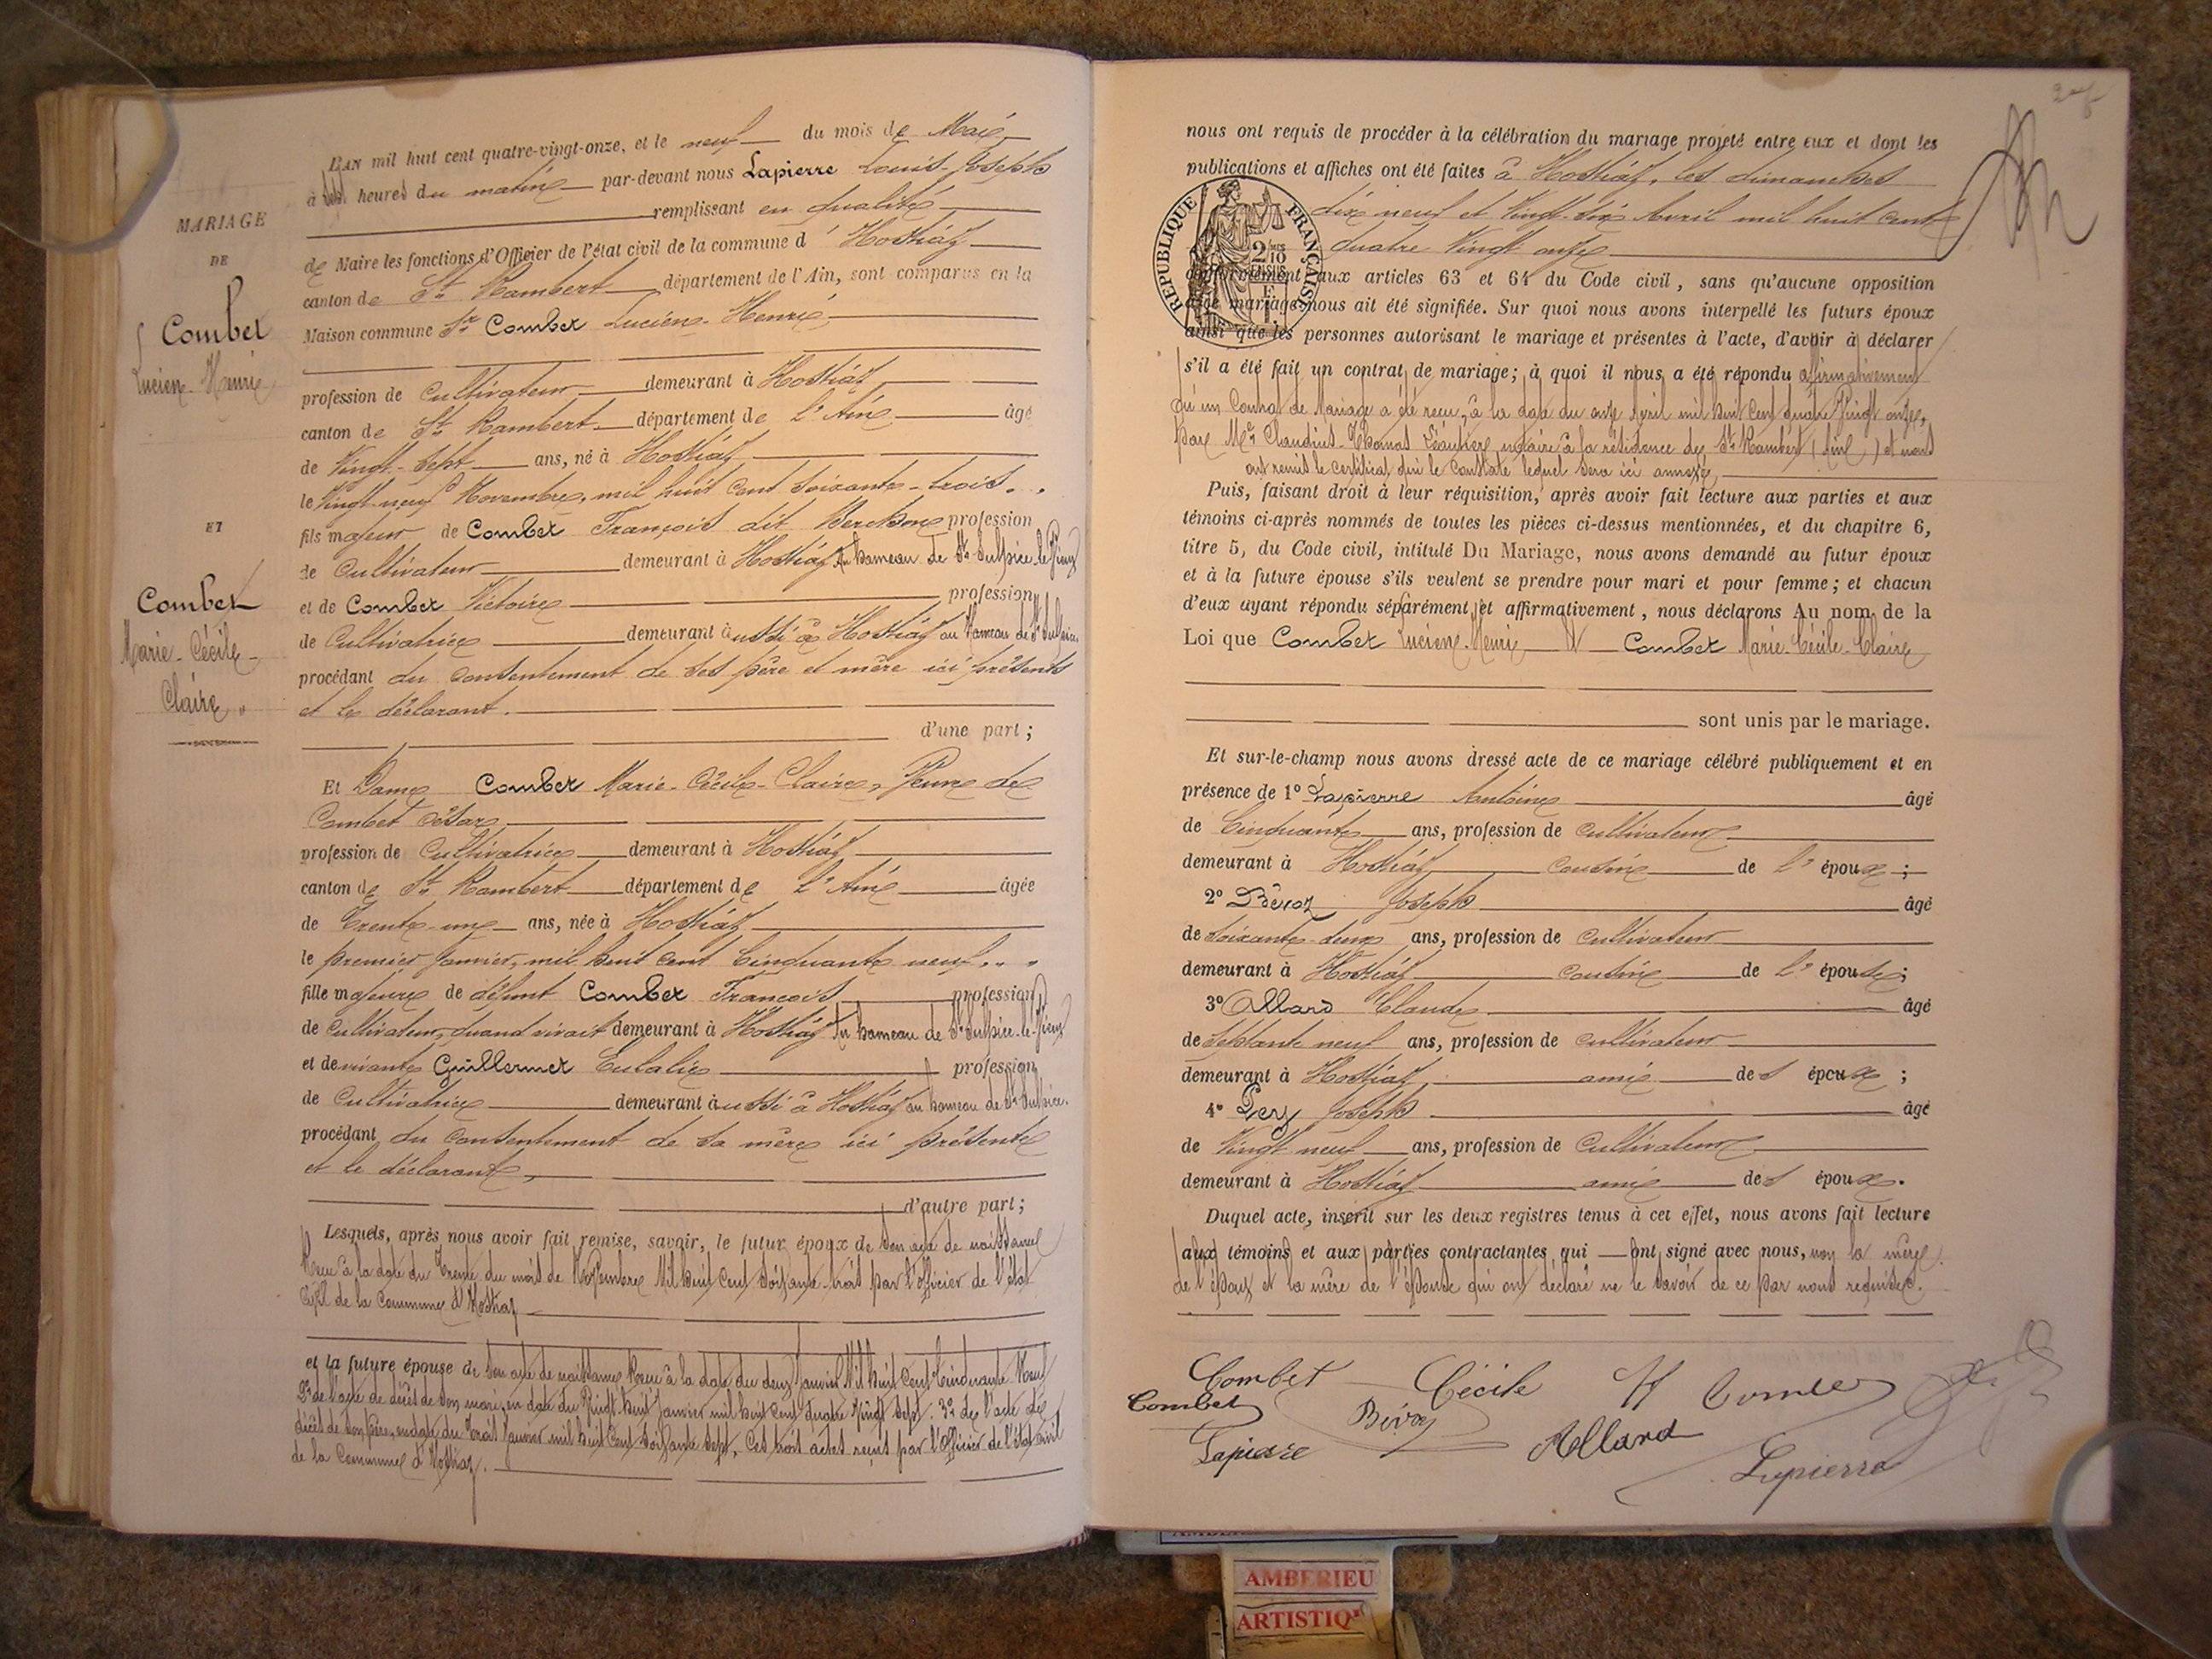 MARIAGE
DE
Combet
Lucien-Henri
ET
Combet
Marie-Cécile-
Claire.
L'AN mil huit cent quatre-vingt-onze, et le neuf du mois de Mai
à heures du matin par-devant nous Lapierre Louis-Joseph
remplissant en qualité
de Maire les fonctions d'Officier de l'état civil de la commune d' Hostiaz
canton de St Rambert département de l'Ain, sont comparus en la
Maison commune Sr Combet Lucien-Henri
profession de Cultivateur demeurant à Hostiaz
canton de St Rambert département de L'Ain âgé
de Vingt-sept ans, né à Hostiaz
le Vingt-neuf Novembre, mil huit cent soixante-trois.
fils majeur de Combet François dit Berchon profession
de Cultivateur demeurant à Hostiaz au hameau de St Sulpice-le-Vieux
et de Combet Victoire profession
de Cultivatrice demeurant aussi à Hostiaz au hameau de St Sulpice
procédant du consentement de ses père et mère ici présents
et le déclarant.
d'une part;
Et Dame Combet Marie-Cécile-Claire, Veuve de
Combet César
profession de Cultivatrice demeurant à Hostiaz
canton de St Rambert département de L'Ain âgée
de Trente-un ans, née à Hostiaz
le premier Janvier, mil huit cent Cinquante neuf.
fille majeure de défunt Combet François profession
de Cultivateur, quand vivait demeurant à Hostiaz au hameau de St Sulpice-le-Vieux
et de vivante Guillermet Eulalie profession
de Cultivatrice demeurant aussi à Hostiaz au hameau de St Sulpice.
procédant du consentement de sa mère ici présente
et le déclarant,
d'autre part;
Lesquels, après nous avoir fait remise, savoir, le futur époux de son acte de naissance
Reçu à la date du Trente du mois de Novembre Mil huit cent soixante trois par l'officier de l'état
Civil de la Commune d'Hostiaz
et la future épouse de son acte de naissance Reçu à la date du deux Janvier Mil huit Cent Cinquante Neuf
2° de l'acte de décès de son mari, en date du Vingt huit Janvier mil huit cent quatre Vingt Sept. 3° de l'acte de
décès de son père, en date du Trois Janvier mil huit Cent Soixante Sept, Ces trois actes reçus par l'Officier de l'état civil
de la Commune d'Hostiaz.
nous ont requis de procéder à la célébration du mariage projeté entre eux et dont les
publications et affiches ont été faites à Hostiaz, les dimanches
dix neuf et Vingt-six Avril mil huit cent
quatre Vingt onze
REPUBLIQUE FRANÇAISE
conformément aux articles 63 et 64 du Code civil, sans qu'aucune opposition
mariage nous ait été signifiée. Sur quoi nous avons interpellé les futurs époux
ainsi que les personnes autorisant le mariage et présentes à l'acte, d'avoir à déclarer
s'il a été fait un contrat de mariage; à quoi il nous a été répondu affirmativement
qu'un Contrat de Mariage a été reçu, à la date du onze Avril mil huit Cent quatre Vingt onze,
par Me Claudius-Thomas notaire à la résidence de St Rambert (Ain) et nous
ont remis le certificat qui le Constate lequel sera ici annexé,
Puis, faisant droit à leur réquisition, après avoir fait lecture aux parties et aux
témoins ci-après nommés de toutes les pièces ci-dessus mentionnées, et du chapitre 6,
titre 5, du Code civil, intitulé Du Mariage, nous avons demandé au futur époux
et à la future épouse s'ils veulent se prendre pour mari et pour femme; et chacun
d'eux ayant répondu séparément et affirmativement, nous déclarons Au nom de la
Loi que Combet Lucien-Henri et Combet Marie-Cécile-Claire
sont unis par le mariage.
Et sur-le-champ nous avons dressé acte de ce mariage célébré publiquement et en
présence de 1° Lapierre Antoine âgé
de Cinquante ans, profession de Cultivateur
demeurant à Hostiaz cousin de l'époux;
2° Bévoz Joseph âgé
de Soixante-deux ans, profession de Cultivateur
demeurant à Hostiaz cousin de l'épouse;
3° Allard Claude âgé
de Septante neuf ans, profession de Cultivateur
demeurant à Hostiaz, ami des époux;
4° Pery Joseph âgé
de Vingt neuf ans, profession de Cultivateur
demeurant à Hostiaz ami des époux.
Duquel acte, inscrit sur les deux registres tenus à cet effet, nous avons fait lecture
aux témoins et aux parties contractantes qui ont signé avec nous, non la mère
de l'époux et la mère de l'épouse qui ont déclaré ne le savoir de ce par nous requises.
Combet Cécile
Combet
Bévoz
Allard
Lapierre
Lapierre
AMBERIEU
ARTISTIQ